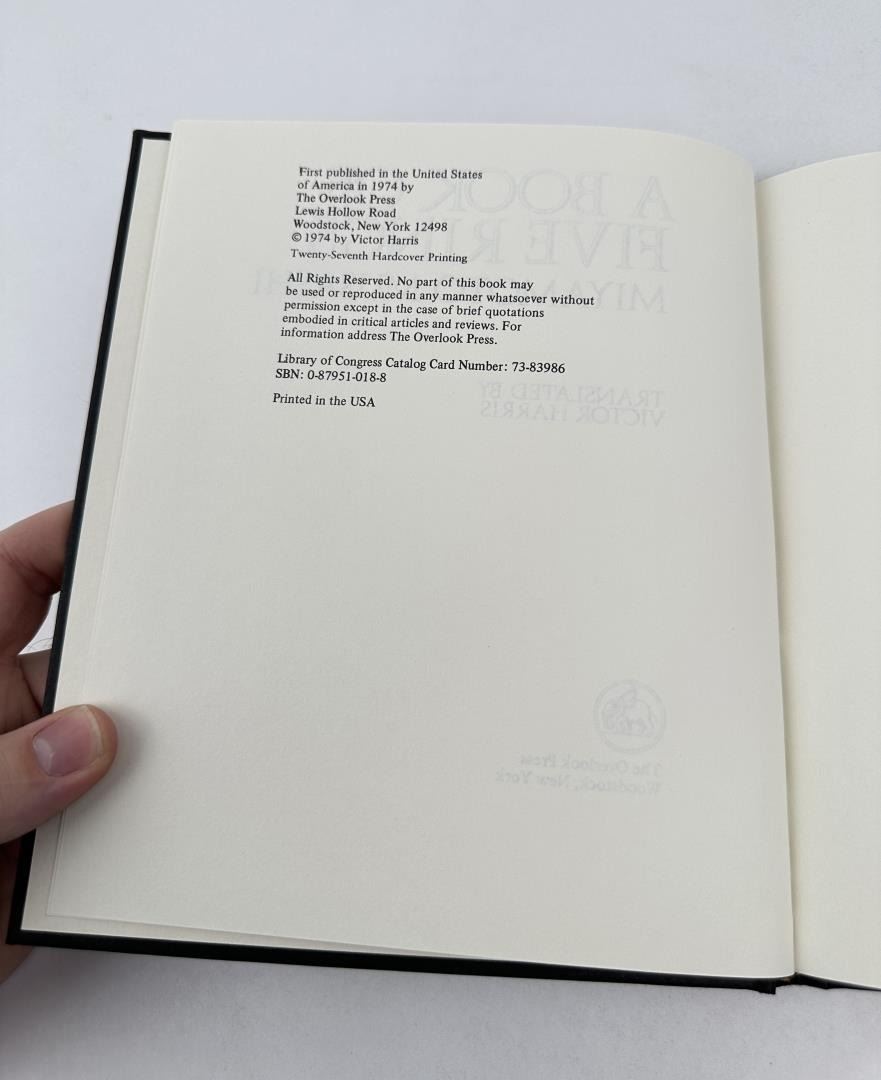 First published in the United States
of America in 1974 by
The Overlook Press
Lewis Hollow Road
Woodstock, New York 12498
© 1974 by Victor Harris
Twenty-Seventh Hardcover Printing
All Rights Reserved. No part of this book may
be used or reproduced in any manner whatsoever without
permission except in the case of brief quotations
embodied in critical articles and reviews. For
information address The Overlook Press.
Library of Congress Catalog Card Number: 73-83986
SBN: 0-87951-018-8
Printed in the USA
A BOOK
FIVE R
MIYAM
TRANSLATED BY
VICTOR HARRIS
The Overlook Press
Woodstock, New York